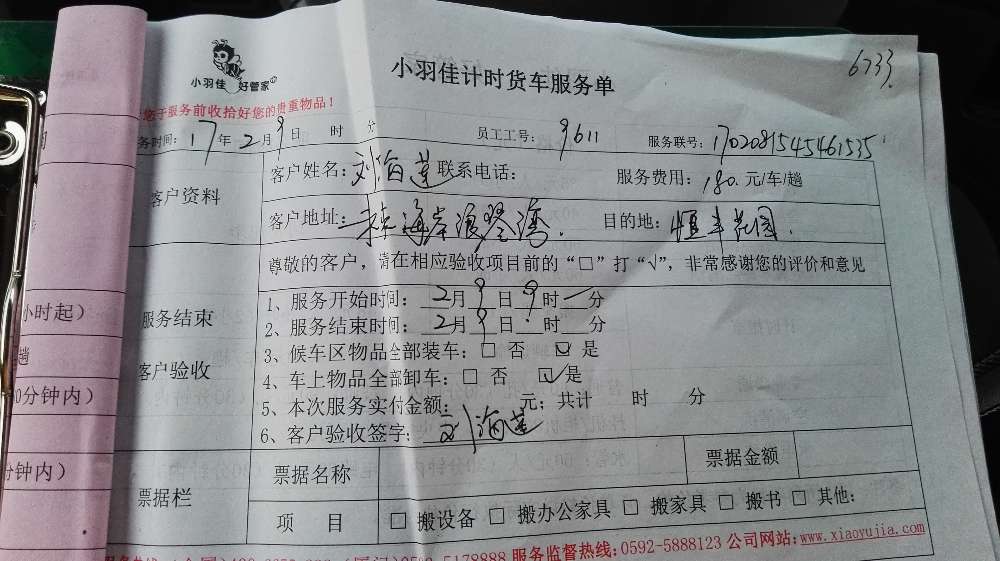 小羽佳 好管家
小羽佳计时货车服务单
6733
您于服务前收拾好您的贵重物品！
务时间：17年2月9日 时 分 员工工号：9611 服务联号：1702081545461535
客户资料
客户姓名：刘海莲 联系电话： 服务费用：180.元/车/趟
客户地址： 海岸 湾. 目的地：恒丰花园.
尊敬的客户，请在相应验收项目前的“□”打“√”，非常感谢您的评价和意见
小时起）
服务结束
客户验收
1、服务开始时间：2月9日9时 分
2、服务结束时间：2月9日 时 分
趟
3、候车区物品全部装车：□ 否 ☑ 是
4、车上物品全部卸车：□ 否 ☑ 是
0分钟内）
5、本次服务实付金额： 元；共计 时 分
6、客户验收签字：刘海莲
分钟内）
票据栏
票据名称 票据金额
项 目 □ 搬设备 □ 搬办公家具 □ 搬家具 □ 搬书 □ 其他：
5178888 服务监督热线：0592-5888123 公司网站：www.xiaoyujia.com